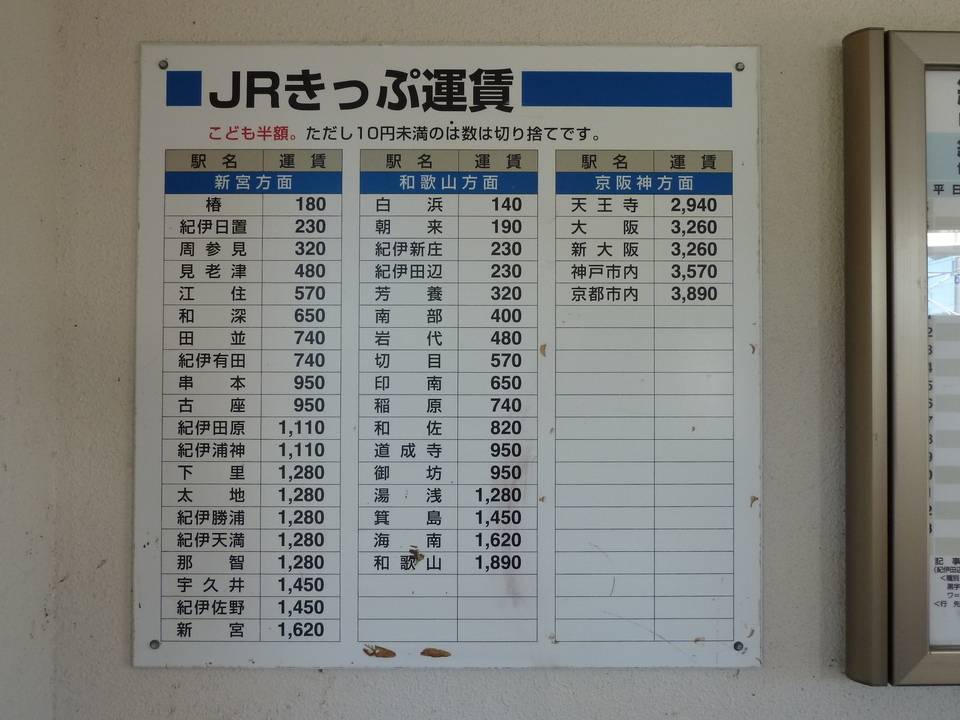 JRきっぷ運賃
こども半額。ただし10円未満のは数は切り捨てです。
駅名 運賃
新宮方面
椿 180
紀伊日置 230
周参見 320
見老津 480
江住 570
和深 650
田並 740
紀伊有田 740
串本 950
古座 950
紀伊田原 1,110
紀伊浦神 1,110
下里 1,280
太地 1,280
紀伊勝浦 1,280
紀伊天満 1,280
那智 1,280
宇久井 1,450
紀伊佐野 1,450
新宮 1,620
駅名 運賃
和歌山方面
白浜 140
朝来 190
紀伊新庄 230
紀伊田辺 230
芳養 320
南部 400
岩代 480
切目 570
印南 650
稲原 740
和佐 820
道成寺 950
御坊 950
湯浅 1,280
箕島 1,450
海南 1,620
和歌山 1,890
駅名 運賃
京阪神方面
天王寺 2,940
大阪 3,260
新大阪 3,260
神戸市内 3,570
京都市内 3,890
平日
記事